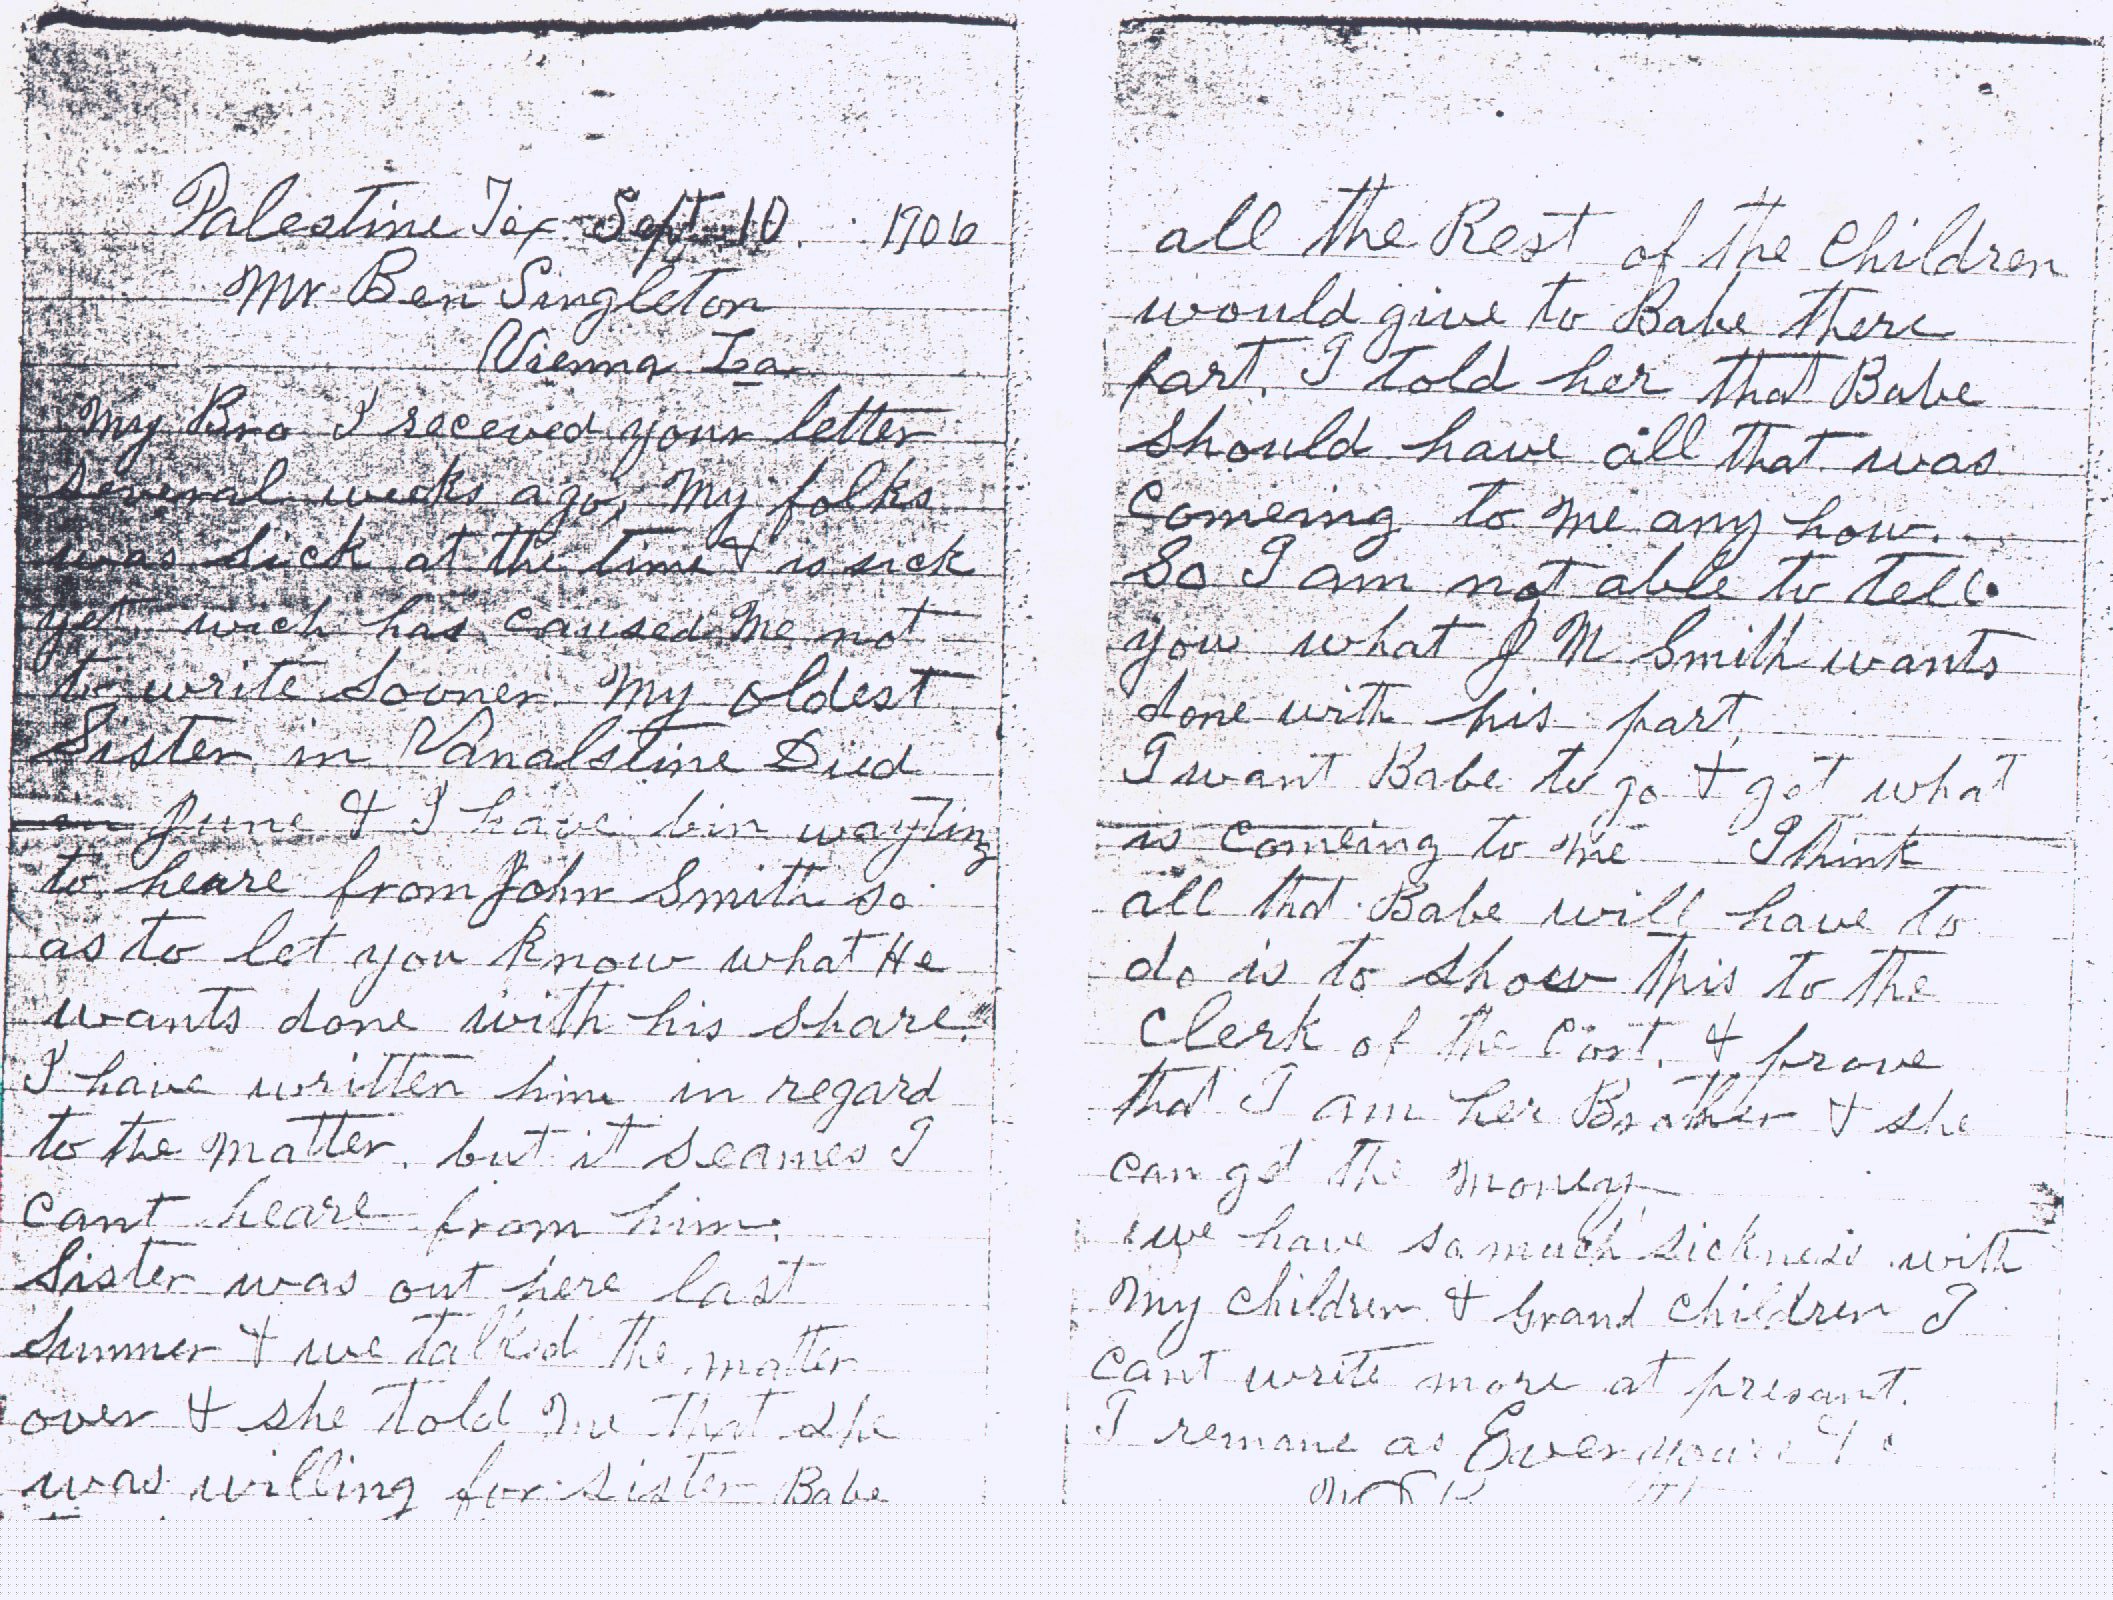 Palestine Tex Sept 10. 1906
Mr Ben Singleton
Vienna La.
My Bro I receved your letter
several weeks ago, My folks
was sick at the time & is sick
yet. wich has caused me not
to write sooner. My oldest
Sister in Vanalstine Died
in June & I have bin wayting
to heare from John Smith so
as to let you know what He
wants done with his share.
I have written him in regard
to the matter, but it seames I
cant heare from him.
Sister was out here last
Summer & we talked the matter
over & she told me that she
was willing for sister Babe
all the Rest of the Children
would give to Babe there
part. I told her that Babe
should have all that was
Comeing to me any how.
So I am not able to tell
you what J M Smith wants
done with his part.
I want Babe to go & get what
is Comeing to me I think
all that Babe will have to
do is to show this to the
Clerk of the Cort. & prove
that I am her Brother & she
can get the money
we have so much sickness with
my children & Grand children I
cant write more at presant.
I remane as Ever yours